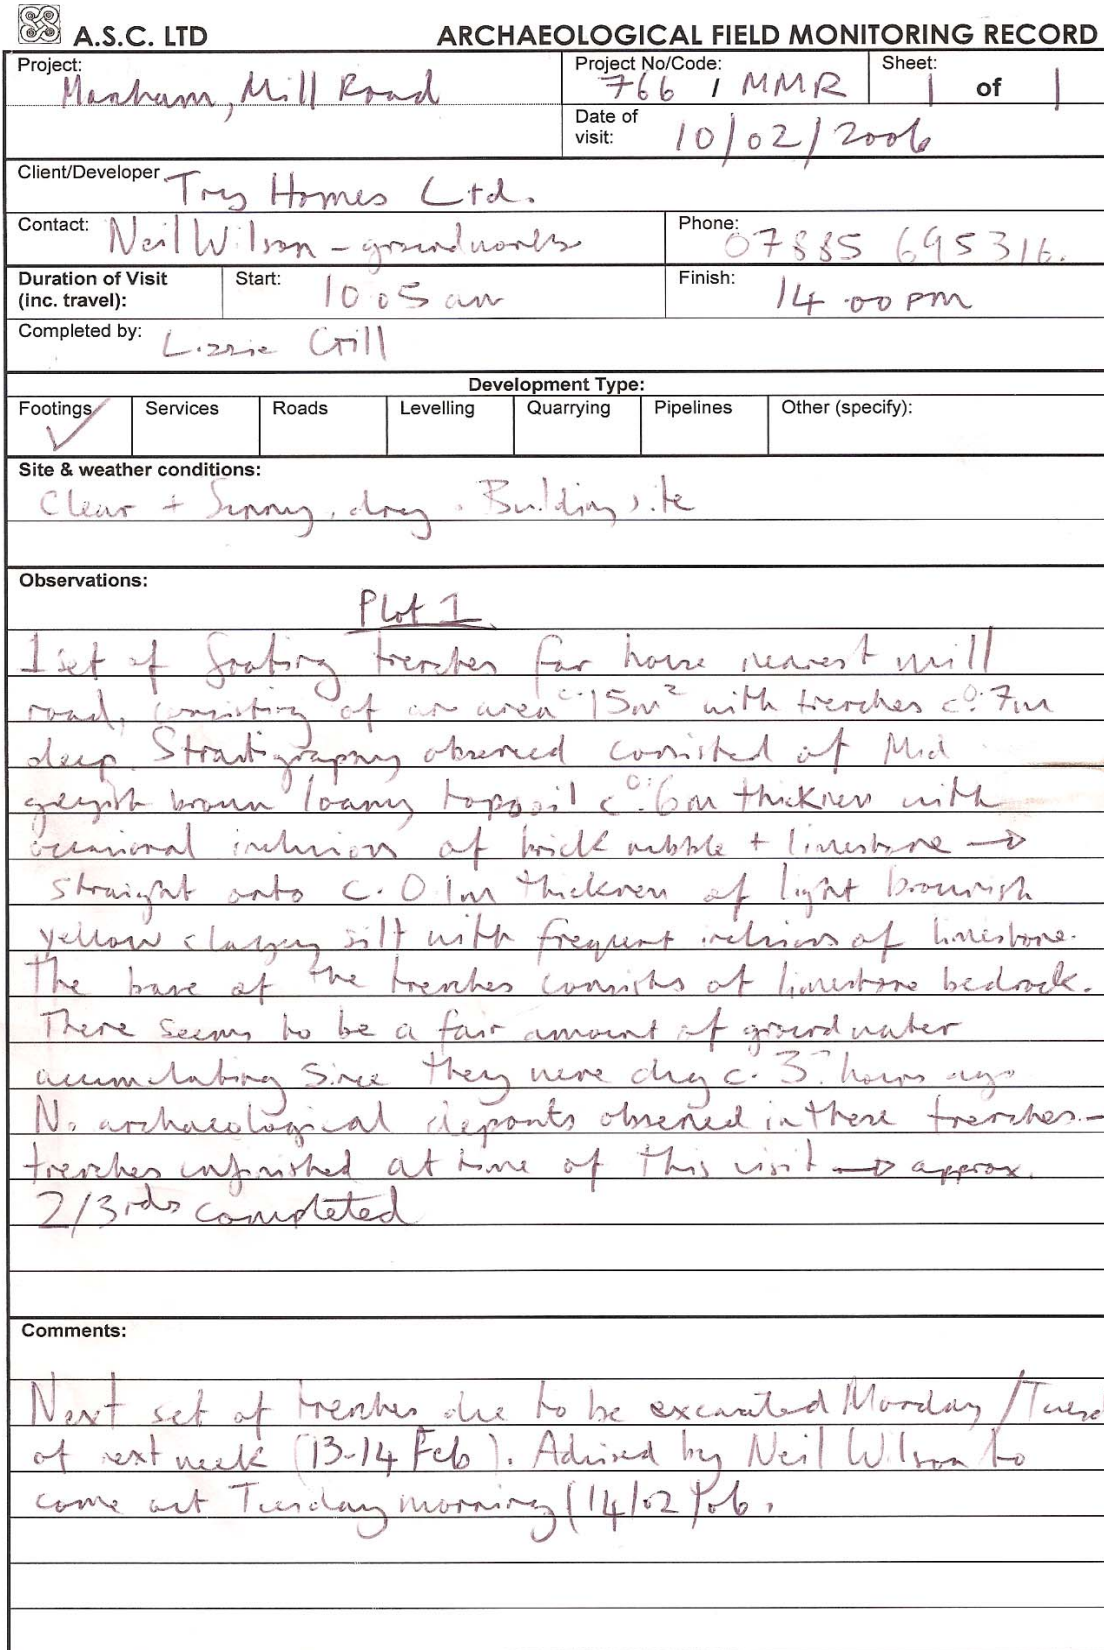 A.S.C. LTD ARCHAEOLOGICAL FIELD MONITORING RECORD
Project: Marham, Mill Road Project No/Code: 766 / MMR Sheet: 1 of 1
Date of visit: 10/02/2006
Client/Developer Try Homes Ltd.
Contact: Neil Wilson - groundworks Phone: 07885 695316.
Duration of Visit (inc. travel): Start: 10.05 am Finish: 14.00 pm
Completed by: Lizzie Gill
Development Type:
Footings ✓ Services Roads Levelling Quarrying Pipelines Other (specify):
Site & weather conditions:
Clear + Sunny, dry. Building site
Observations:
Plot 1
1 set of footing trenches for house nearest mill
road, consisting of an area c.15m² with trenches c.0.7m
deep. Stratigraphy observed consisted of Mid
greyish brown loamy topsoil c.0.6m thickness with
occasional inclusions of brick rubble + limestone →
straight onto c. 0.1m thickness of light brownish
yellow clayey silt with frequent inclusions of limestone.
The base of the trenches consists of limestone bedrock.
There seems to be a fair amount of groundwater
accumulating since they were dug c. 3 hours ago
No archaeological deposits observed in these trenches. -
trenches unfinished at time of this visit → approx.
2/3rds completed
Comments:
Next set of trenches due to be excavated Monday / Tuesd
of next week (13-14 Feb). Advised by Neil Wilson to
come out Tuesday morning (14/02/06.